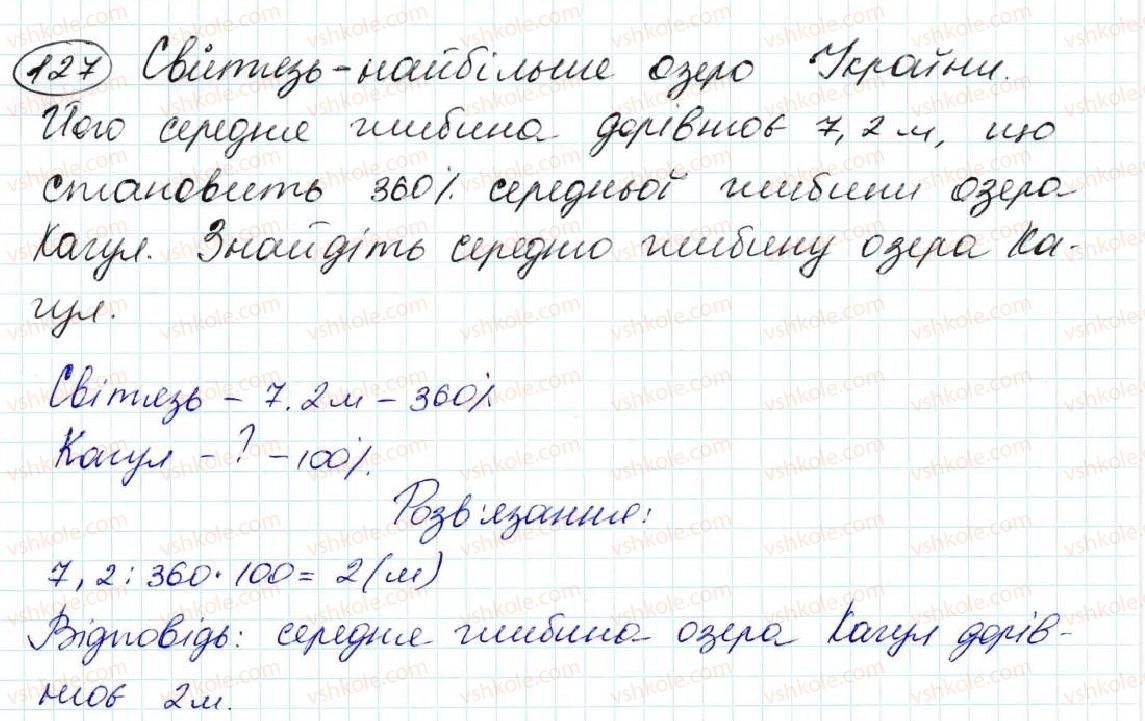 127 Свитязь - найбільше озеро України.
Його середня глибина дорівнює 7,2 м, що
становить 360% середньої глибини озера
Кагул. Знайдіть середню глибину озера Ка-
гул.
Світязь - 7.2 м - 360%
Кагул - ? - 100%.
Розв'язання:
7,2 : 360 · 100 = 2 (м)
Відповідь: середня глибина озера Кагул дорів-
нює 2 м.
vshkole.com